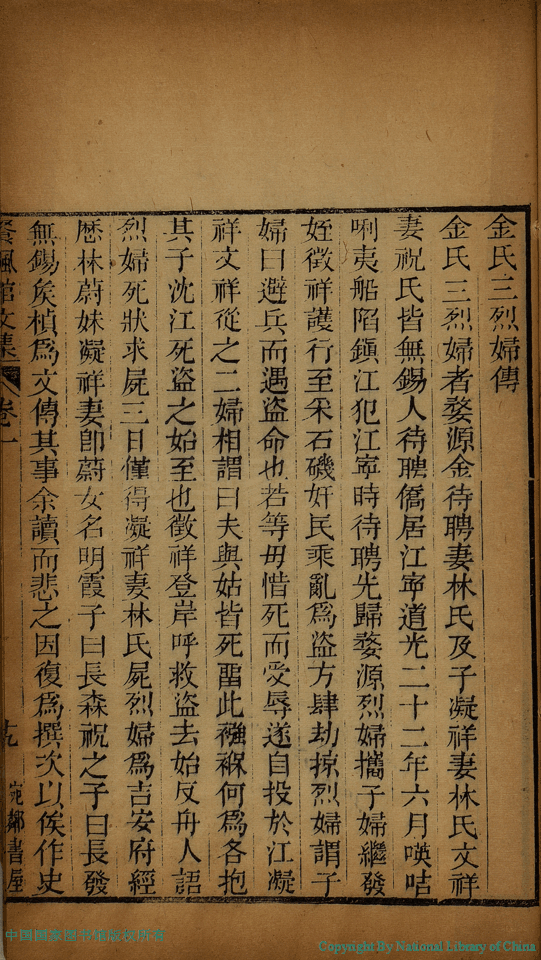 金氏三烈婦傳
金氏三烈婦者婺源金待聘妻林氏及子凝祥妻林氏文祥
妻祝氏皆無錫人待聘僑居江寧道光二十二年六月㗲咭
唎夷船陷鎮江犯江寧時待聘先歸婺源烈婦攜子婦繼發
姪徵祥護行至采石磯奸民乘亂爲盜方肆劫掠烈婦謂子
婦曰避兵而遇盜命也若等毋惜死而受辱遂自投於江凝
祥文祥從之二婦相謂曰夫與姑皆死畱此襁褓何爲各抱
其子沈江死盜之始至也徵祥登岸呼救盜去始反舟人語
烈婦死狀求屍三日僅得凝祥妻林氏屍烈婦爲吉安府經
厯林蔚妹凝祥妻卽蔚女名明霞子曰長森祝之子曰長發
無錫矦楨爲文傳其事余讀而悲之因復爲撰次以俟作史
卷一
十九
宛鄰書屋
中国国家图书馆版权所有
Copyright By National Library of China